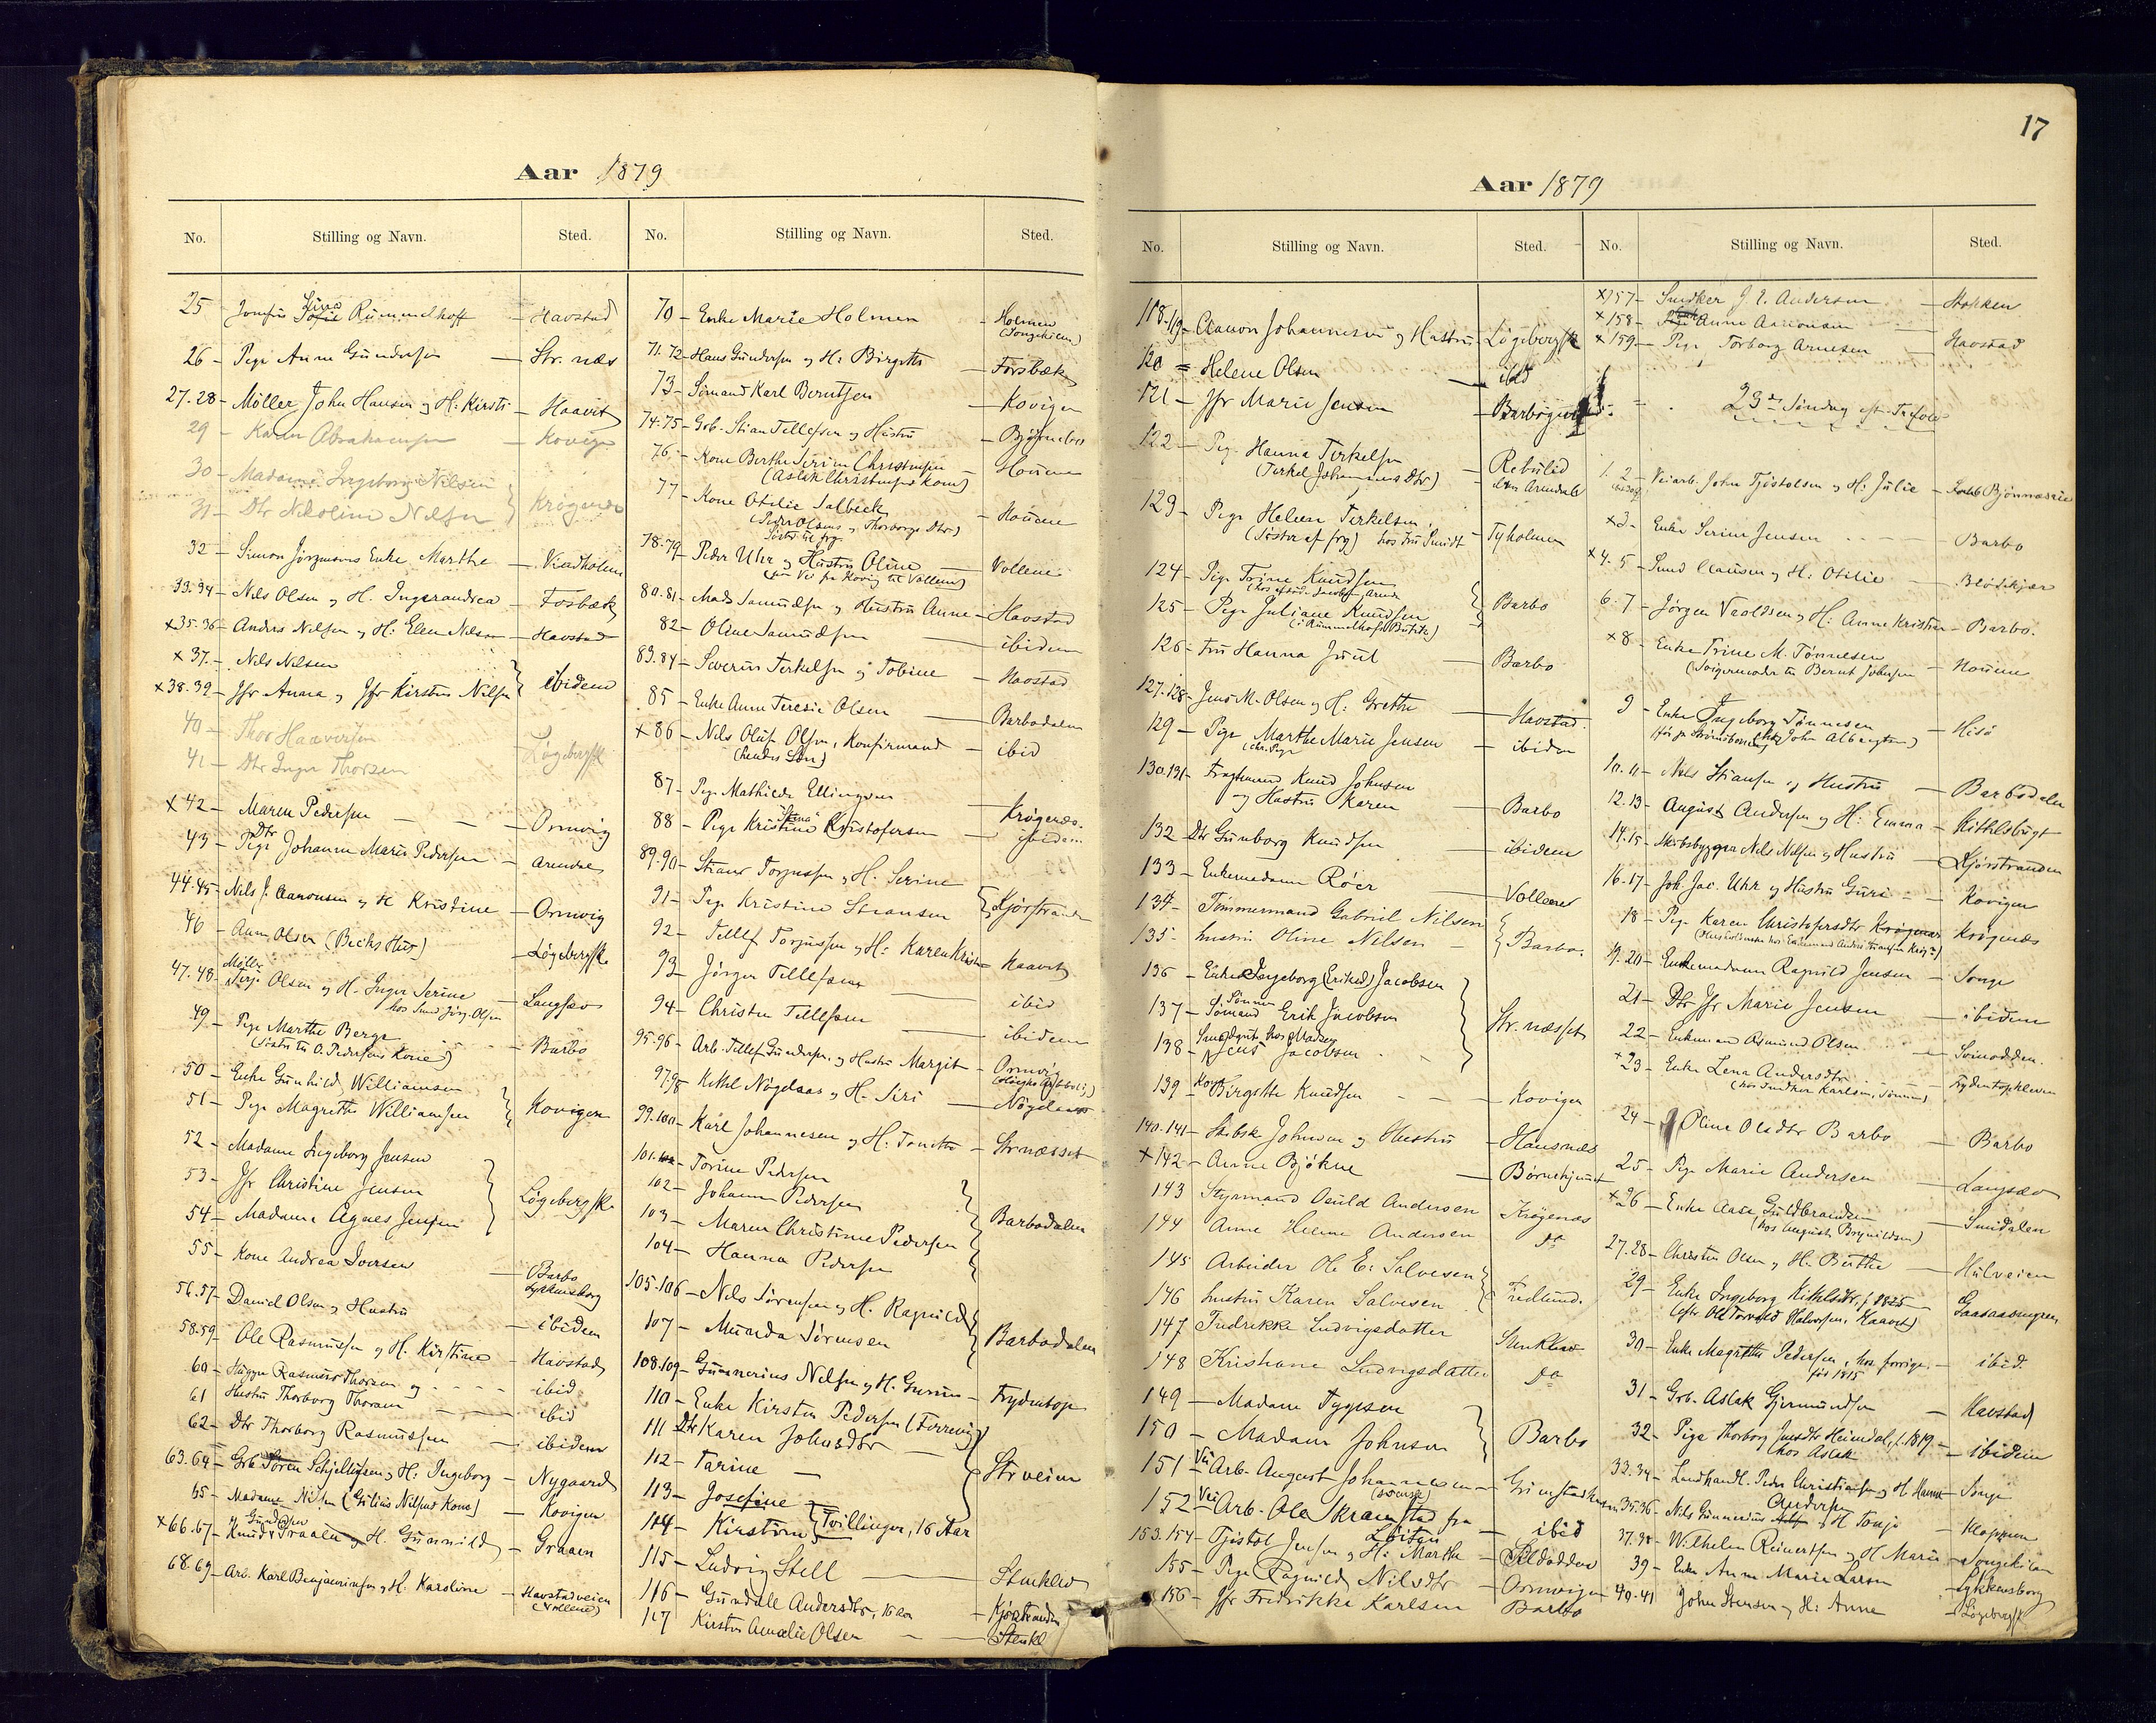 17
Aar 1879
No. Stilling og Navn. Sted.
25 Jomfru Sina Rummelhoff - Havstad
26 - Pige Anne Gundersen - Str. næs
27.28 - Møller John Hansen og H: Kirsti - Haavet
29 - Karen Abrahamsen - Kovigen
30 - Madame Ingeborg Nilsen
31 - Dtr Nikoline Nilsen } Krøgenes
32 - Simon Jørgensens Enke Marthe - Vindholmen
33.34 - Nils Olsen og H. Ingerandrea - Fosbæk
x 35.36 - Anders Nilsen og H: Ellen Nilsen - Havstad
x 37 - Nils Nilsen
x 38.39 - Jfr Anna og Jfr Kirsten Nilsen } ibidem
40 - Thor Haaversen
41 - Dtr Inger Thorsen Løgebergsk
x 42 - Maren Pedersen - Ormvig
43 - Dtr Johanne Marie Pedersen - Arendal
44.45 - Nils J. Aanonsen og H Kristine - Ormvig
46 - Anne Olsen (Bechs Hus) - Løgebergsk
47.48 - Møller Terje Olsen og H. Inger Serine - Langsæv
hos Smd Jørg. Olsen
49 - Pige Marthe Berge - Barbo
(Søster til O. Pedersens Kone)
50 - Enke Gunhild Williamsen
51 - Pige Magrethe Williamsen } Kovigen
52 - Madame Ingeborg Jensen
53 - Jfr Christine Jensen } Løgebergsk
54 - Madame Agnes Jensen
55 - Kone Andrea Iversen - Barbo
Lykkensborg
56.57 - Daniel Olsen og Hustru - ibidem
58.59 - Ole Rasmussen og H. Kirstine - Havstad
60 - Rasmus Thorsen og - ibid
61 Hustru Thorborg Thorsen - ibid
62 - Dtr Thorborg Rasmussen - ibidem
63.64 - Grb Søren Schjelluksen og H: Ingeborg - Nygaard
65 - Madame Nilsen (Gilius Nilsens Kone) - Kovigen
x 66.67 - Knud Gundersen Graalen og H. Gunnild - Graaen
68.69 - Arb. Karl Benjaminsen og H. Karoline - Havstadveien
(Vollene)
No. Stilling og Navn. Sted.
70 - Enke Marie Holmen - Holmen
(Songekilen)
71.72 - Hans Gundersen og H: Birgitte - Forsbæk
73 - Sømand Karl Berntsen - Kovigen
74.75 - Grb. Stian Tellefsen og Hustru - Bjørnebo
76 - Kone Berthe Serine Christensen - Houene
(Aslak Christensens Kone)
77 - Kone Otilie Salbeck - Houene
(Peder Olsens og Thorborgs Dtr)
Søster til frg.
78.79 - Peder Uhr og Hustru Oline - Vollene
(paa Vei fra Kovig til Vollene)
80.81 - Mads Samuelsen og Hustru Anne - Havstad
82 - Oline Samuelsen - ibidem
83.84 - Severin Terkelsen og Tobine - Havstad
85 - Enke Anne Teresie Olsen - Barbodalen
x 86 - Nils Oluf Olsen, Konfirmand - ibid
(hendes Søn)
87 - Pige Mathilde Ellingsen - Krøgenæs.
88 - Pige Kristine "Stena" Kristofersen - ibidem
89.90 - Stian Torjussen og H. Serine
91 - Pige Kristine Stiansen } Kjørstranden
92 - Tellef Torjussen og H: Karen Kristine - Haavet
93 - Jørgen Tellefsen
94 - Christen Tellefsen - ibid
95.96 - Arb. Tellef Gundersen og Hustru Margit - Ormvig
97.98 - Kittel Nøgelaas og H. Siri - Nøgelaas
99.100 - Karl Johannesen og H: Tomine - Strnæsset
101. - Torine Pedersen
102 - Johanne Pedersen
103 - Maren Christine Pedersen } Barbodalen
104 - Hanna Pedersen
105.106 - Nils Sørensen og H. Ragnild
107 - Munda Sørensen } Barbodalen
108.109 - Gunnerius Nilsen og H. Gurine - Frydentop
110 - Enke Kirsten Pedersen (Ferrevig)
111 Dtr Karen Johnsdtr -
112 - Tarine - } Str veien
113 - Josefine
114 - Kirstine } Tvillinger, 16 Aar
115 - Ludvig Stell - Stinkleiv
116 - Gundelle Andersdtr, 16 Aar - Kjørstranden
117 Kirsten Amalie Olsen - Stenkl
Aar 1879
No. Stilling og Navn. Sted.
118.119 - Aanon Johannesen og Hustru - Løgebergsk
120 = Helene Olsen - ibid
121 - Jfr Marie Jensen - Barbogaard
122 - Pige Hanna Terkelsen - Rebuild
(Terkel Johannesens Dtr) - i Arendal
123 - Pige Helene Terkelsen - Tyholmen
(Søster af frg) hos Fru Smidt
124 - Pige Trine Knudsen
125 - Pige Juliane Knudsen } Barbo
(i Rummelhofs Butik)
126 - Fru Hanna Juul - Barbo
127.128 - Jens M. Olsen og H: Grethe - Havstad
129 - Pige Marthe Marie Jensen - ibidem
130.131 - Fragtmand Knud Johnsen
og Hustru Karen - Barbo
132 - Dtr Gunborg Knudsen - ibidem
133 - Enkemadame Röer - Vollene
134 - Tømmermand Gabriel Nilsen
135 - hustru Oline Nilsen - } Barbo.
136 - Enke Ingeborg (Eriksd) Jacobsen
137 - Sønnen Sømand Erik Jacobsen } Str. næsset
138 - Jens Jacobsen
139 - Kone Birgitte Knudsen - Kovigen
140.141 - Skibsk Johnsen og Hustru - Hansnæs
x 142 - Anne Bjökne - Børnehjemmet
143 Styrmand Oeuld Andersen Krøgenæs
144 Anne Helene Andersen do
145 Arbeider Ole E: Salvesen
146 hustru Karen Salvesen } Fredlund.
147 Fredrikke Ludvigsdatter Stenkleiv
148 Kristiane Ludvigsdatter do
149 - Madame Tygesen
150 - Madam Johnsen } Barbo
151 - Arb. August Johannesen - Grimstadveien
(svensk)
152 - Vei Arb. Ole Skramstad fra - ibid
Løiten
153.154 - Tjøstøl Jensen og H: Marthe - Sildodden
155 - Pige Ragnild Nilsdtr - Ormvigen
156 - Jfr Fredrikke Karlsen Barbo
No. Stilling og Navn. Sted.
x 157 - Snedker J. E. Andersen - Stokken
x 158 - Anne Aanonsen
x 159 - Pige Torborg Arnesen - Havstad
23de Søndag eft. Trefold
1. 2 - Veiarb. John Tjøstolsen og H: Julie - Bjönnæsveien
x 3 - Enke Serine Jensen - Barbo
x 4.5 - Smd Clausen og H: Otilie - Blødekjær
6.7 - Jørgen Veoldsen og H: Anne Kristine - Barbo.
x 8 - Enke Trine M. Tønnesen - Houene
(Svigermoder til Bernt Johnsen
9 - Enke Ingeborg Tønnesen - Hisö
10.11 - Niels Stiansen og Hustru - Barbodalen
12.13 - August Andersen og H: Emma - Kittelsbugt
14.15 - Skibsbygger Nils Nilsen og Hustru - Kjørstranden
16.17 - Joh. Jac. Uhr og Hustru Guri - Kovigen
18 - Pige Karen Christofersdtr Krøgenæs - Krøgnæs
19.20 - Enkemadam Ragnild Jensen - Songe
21 - Dtr Jfr Marie Jensen - ibidem
22 - Enkemand Asmund Olsen - Svinodden.
x 23 - Enke Lena Andersdtr - Frydentopkleven
24 - Oline Olsdtr Barbo - Barbo
25 - Pige Marie Andersen - Langsæv
x 26 - Enke Aase Guldbrandsen - Smidalen
(hos August Brynildsen)
27.28 - Christen Olsen og H. Birthe - Hulveien
29 - Enke Ingeborg Kittelsdtr, f. 1825 - Gaasasumpen
(efter Ole Torvald Halvorsen, Haavet)
30 - Enke Magrethe Pedersen, hos forrige - ibid.
før 1815
31 - Grb. Aslak Gjermundsen - Havstad
32 - Pige Thorborg Jensdtr Heimdal, f. 1819 - ibidem
hos Aslak
33.34 - Landhandl. Peder Christiansen og H Hanne - Songe
35.36 - Nils Gunnerius Andersen og H Tonje - Kloppen
37.38 - Wilhelm Reinertsen og H Marie - Songekilen
39 - Enke Anne Marie Larsen - Lykkensborg
40.41 John Stensen og H: Anne - Løgebergsk